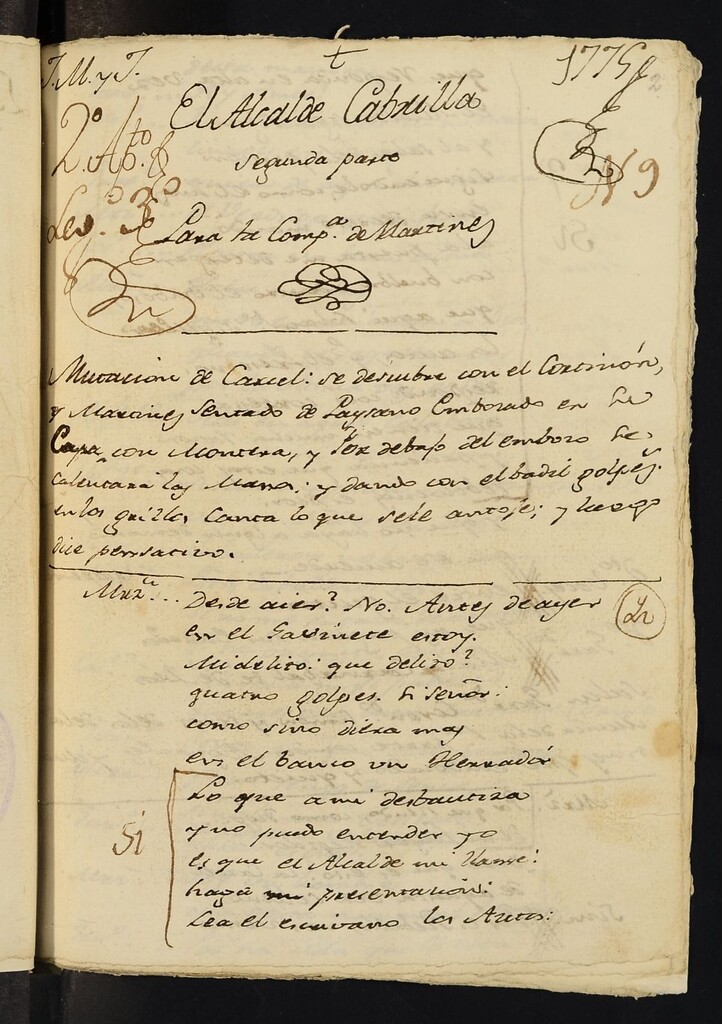 J. M. y J.
1775
El Alcalde Cabrilla
2º Apto
segunda parte
N 9
Leg.
Para la Comp.ª de Martinez
Mutacion de Carcel: se descubre con el Cortinón,
y Martinez sentado de Paysano Embozado en su
Capa, con Montera, y Por debajo del embozo se
calentará las Manos: y dando con el badil golpes
en los grillos Canta lo que sele antoje; y luego
dice pensativo.
Mrz.... Desde aier? No. Antes de ayer
en el Gavinete estoy.
Mi delito: que delito?
quatro golpes. Si señor:
como sino diera mas
en el banco un Herrador
Si
Lo que a mi desbautiza
y no puedo entender yo
es que el Alcalde mi llame:
haga mi presentacion:
Lea el escrivano los Autos: